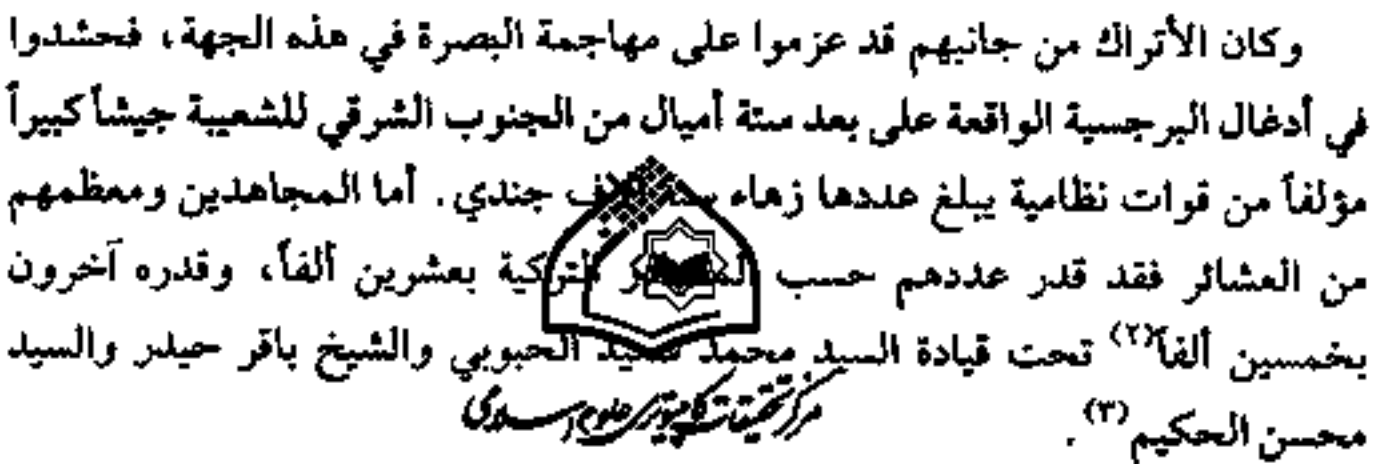 وكان الأتراك من جانبهم قد عزموا على مهاجمة البصرة في هذه الجهة، فحشدوا
في أدغال البرجسية الواقعة على بعد ستة أميال من الجنوب الشرقي للشعيبة جيشاً كبيراً
مؤلفاً من قوات نظامية يبلغ عددها زهاء جندي. أما المجاهدين ومعظمهم
من العشائر فقد قدر عددهم حسب التركية بعشرين ألفاً، وقدره آخرون
بخمسين ألفاً(٢) تحت قيادة السيد محمد سعيد الحبوبي والشيخ باقر حيدر والسيد
مرکز تحقیقات کامپیوتری علوم اسلامی
محسن الحكيم(٣).